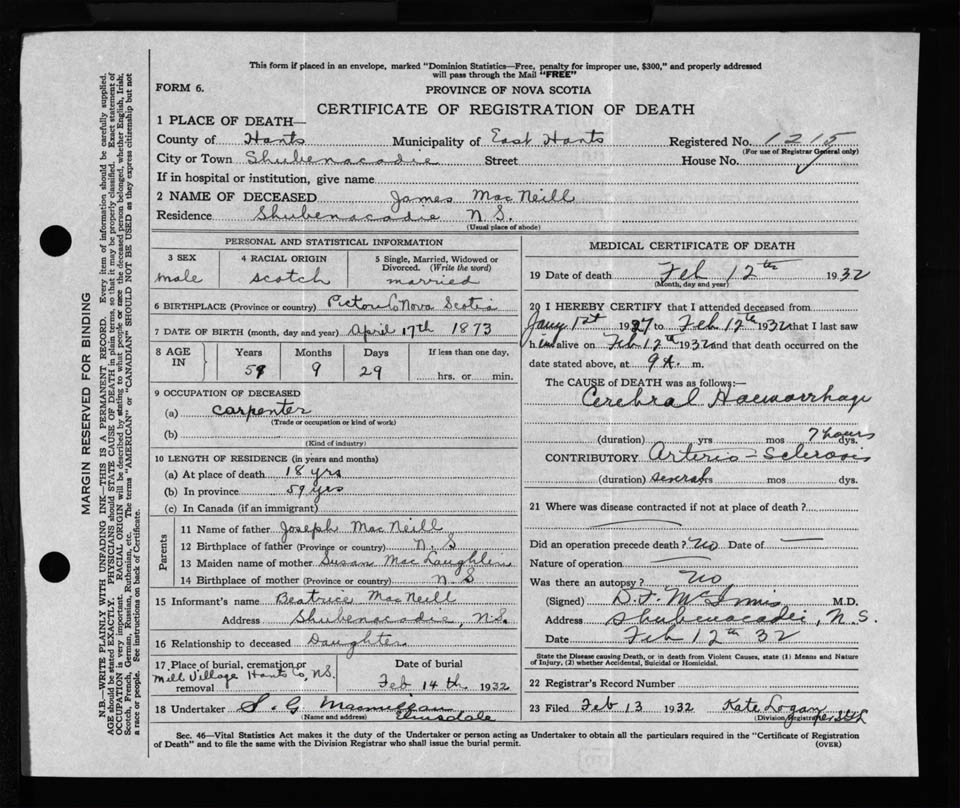 This form if placed in an envelope, marked "Dominion Statistics—Free, penalty for improper use, $300," and properly addressed
will pass through the Mail "FREE"
FORM 6.
PROVINCE OF NOVA SCOTIA
CERTIFICATE OF REGISTRATION OF DEATH
1 PLACE OF DEATH—
County of Hants Municipality of East Hants Registered No. 1215
(For use of Registrar General only)
City or Town Shubenacadie Street House No.
If in hospital or institution, give name
2 NAME OF DECEASED James MacNeill
Residence Shubenacadie N.S.
(Usual place of abode)
MARGIN RESERVED FOR BINDING
N.B.—WRITE PLAINLY WITH UNFADING INK—THIS IS A PERMANENT RECORD. Every item of information should be carefully supplied.
AGE should be stated EXACTLY. PHYSICIANS should STATE CAUSE OF DEATH in plain terms, so that it may be properly classified. Exact statement of
OCCUPATION is very important. RACIAL ORIGIN will be described by stating to what people or race the deceased person belonged, whether English, Irish,
Scotch, French, German, Russian, Ruthenian, etc. The terms "AMERICAN" or "CANADIAN" SHOULD NOT BE USED as they express citizenship but not
a race or people. See instructions on back of Certificate.
PERSONAL AND STATISTICAL INFORMATION
3 SEX 4 RACIAL ORIGIN 5 Single, Married, Widowed or
Divorced. (Write the word)
male scotch married
6 BIRTHPLACE (Province or country) Pictou Co Nova Scotia
7 DATE OF BIRTH (month, day and year) April 17th 1873
8 AGE IN Years Months Days If less than one day,
9 29 hrs. or min.
9 OCCUPATION OF DECEASED
(a) carpenter
(Trade or occupation or kind of work)
(b)
(Kind of industry)
10 LENGTH OF RESIDENCE (in years and months)
(a) At place of death 18 yrs
(b) In province 59 yrs
(c) In Canada (if an immigrant)
Parents
11 Name of father Joseph MacNeill
12 Birthplace of father (Province or country) N.S
13 Maiden name of mother Susan MacLaughlin
14 Birthplace of mother (Province or country) N.S
15 Informant's name Beatrice MacNeill
Address Shubenacadie, N.S.
16 Relationship to deceased Daughter
17 Place of burial, cremation or removal Mill Village Hants Co, N.S.
Date of burial
Feb 14th 1932
18 Undertaker S. G. Macmillan
(Name and address) Elmsdale
MEDICAL CERTIFICATE OF DEATH
19 Date of death Feb 12th 1932
(Month, day and year)
20 I HEREBY CERTIFY that I attended deceased from
Jany 1st 1927 to Feb 12th 1932 that I last saw
him alive on Feb 12th 1932 and that death occurred on the
date stated above, at 9 A. m.
The CAUSE of DEATH was as follows:—
Cerebral Haemorrhage
(duration) yrs mos 7 hours dys.
CONTRIBUTORY Arterio-Sclerosis
(duration) several yrs mos dys.
21 Where was disease contracted if not at place of death?
Did an operation precede death? No Date of —
Nature of operation —
Was there an autopsy? No
(Signed) D.F. McInnis M.D.
Address Shubenacadie, N.S.
Date Feb 12th 32
State the Disease causing Death, or in death from Violent Causes, state (1) Means and Nature
of Injury, (2) whether Accidental, Suicidal or Homicidal.
22 Registrar's Record Number
23 Filed Feb 13 1932 Kate Logan
(Division Registrar)
Sec. 46—Vital Statistics Act makes it the duty of the Undertaker or person acting as Undertaker to obtain all the particulars required in the "Certificate of Registration
of Death" and to file the same with the Division Registrar who shall issue the burial permit. (OVER)